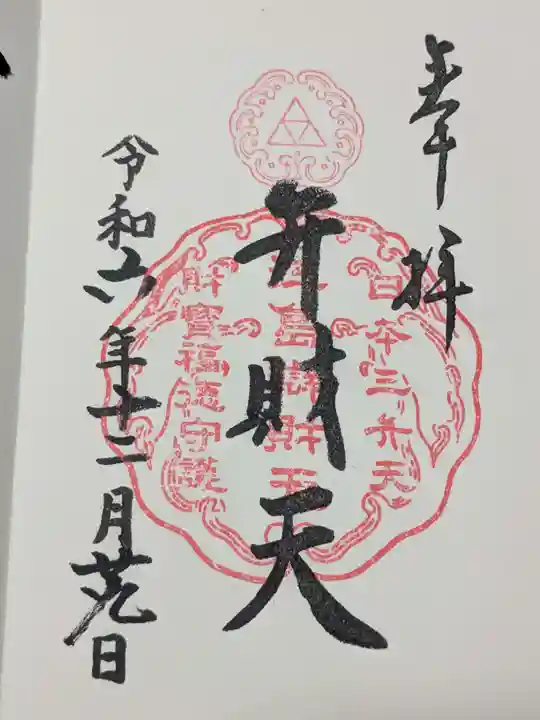 奉拝
日本三弁天
弁財天
財寶福徳守護
令和六年十二月廿九日